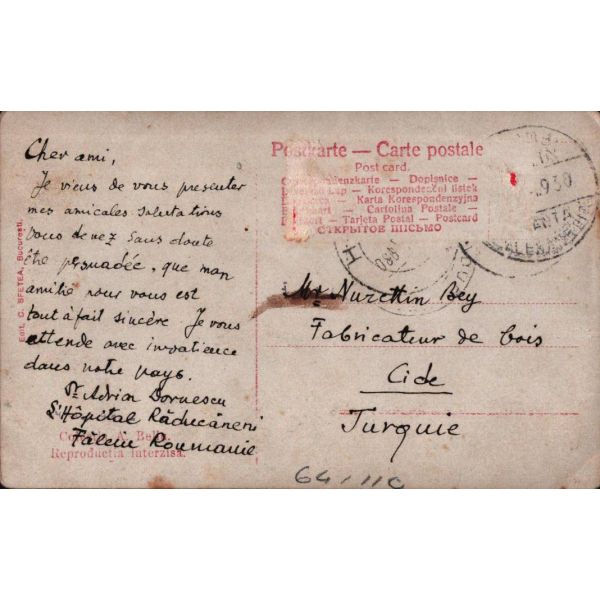 Cher ami,
Je viens de vous presenter
mes amicales salutations
Vous devez sans doute
être persuadée, que mon
amitié pour vous est
tout à fait sincère Je vous
attende avec impatience
dans votre pays.
Dr Adrian Dornescu
L'Hôpital Răducăneni
Fălciu Roumanie
Reproducția interzisa.
Edit. C. SFETEA, București.
Postkarte — Carte postale
Post card.
— Dopisnice —
— Korespondenční listek
— Karta Korespondenzyjna
— Cartolina Postale —
— Tarjeta Postal — Postcard
ОТКРЫТОЕ ПИСЬМО
930
Mr Nurettin Bey
Fabricateur de bois
Cide
Turquie
64/110